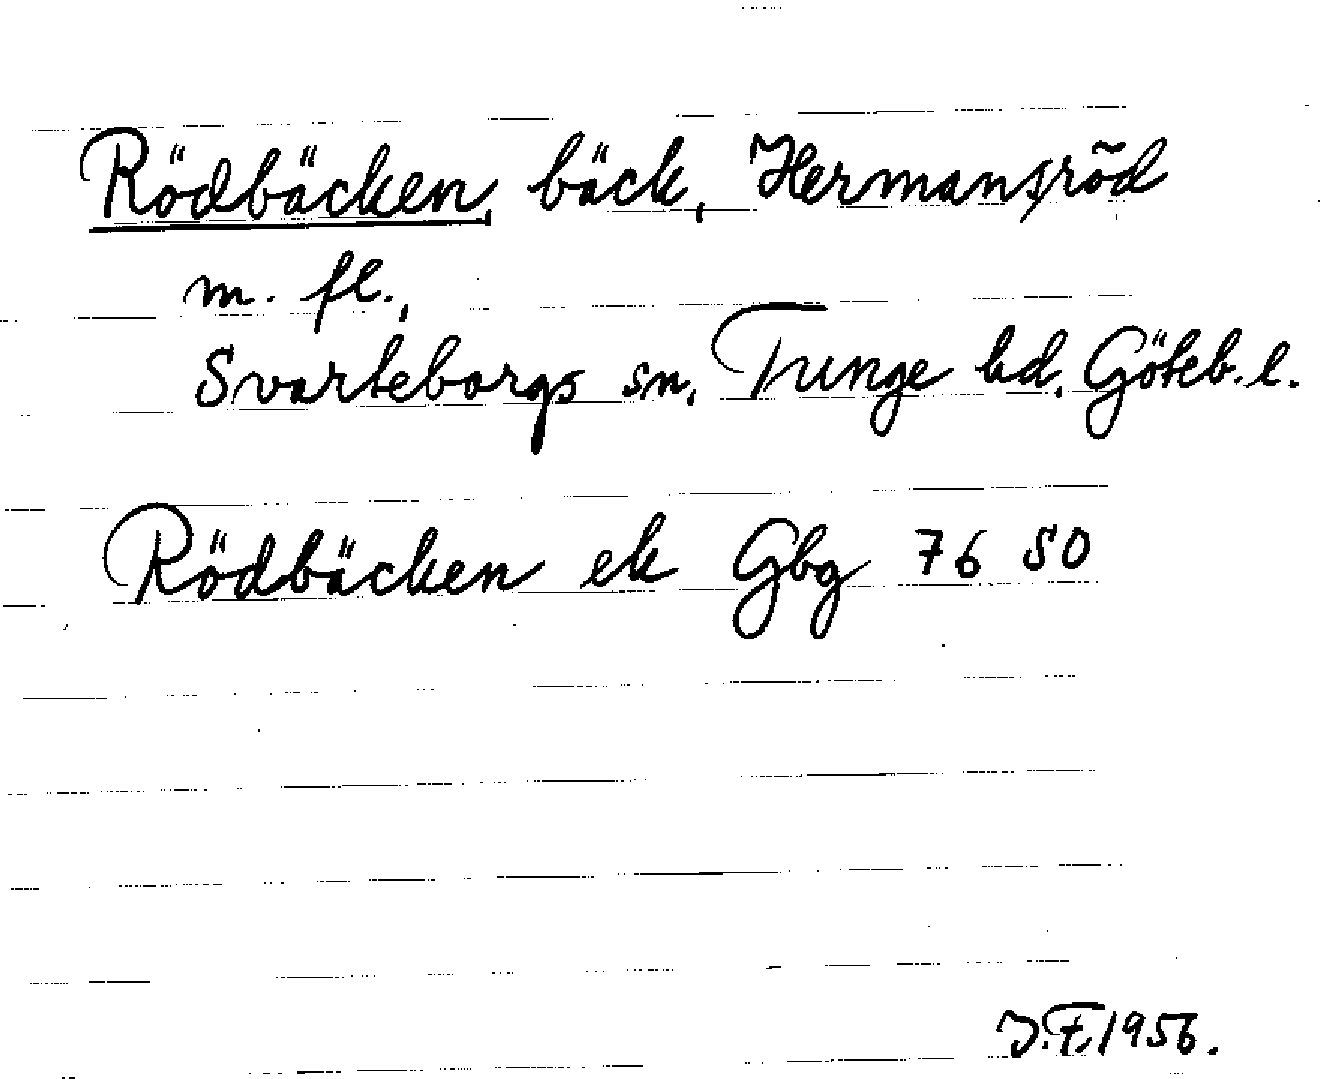 Rödbäcken, bäck, Hermansröd
m. fl.,
Svarteborgs sn, Tunge hd, Göteb. l.
Rödbäcken ek Gbg 76 SO
J.F. 1956.